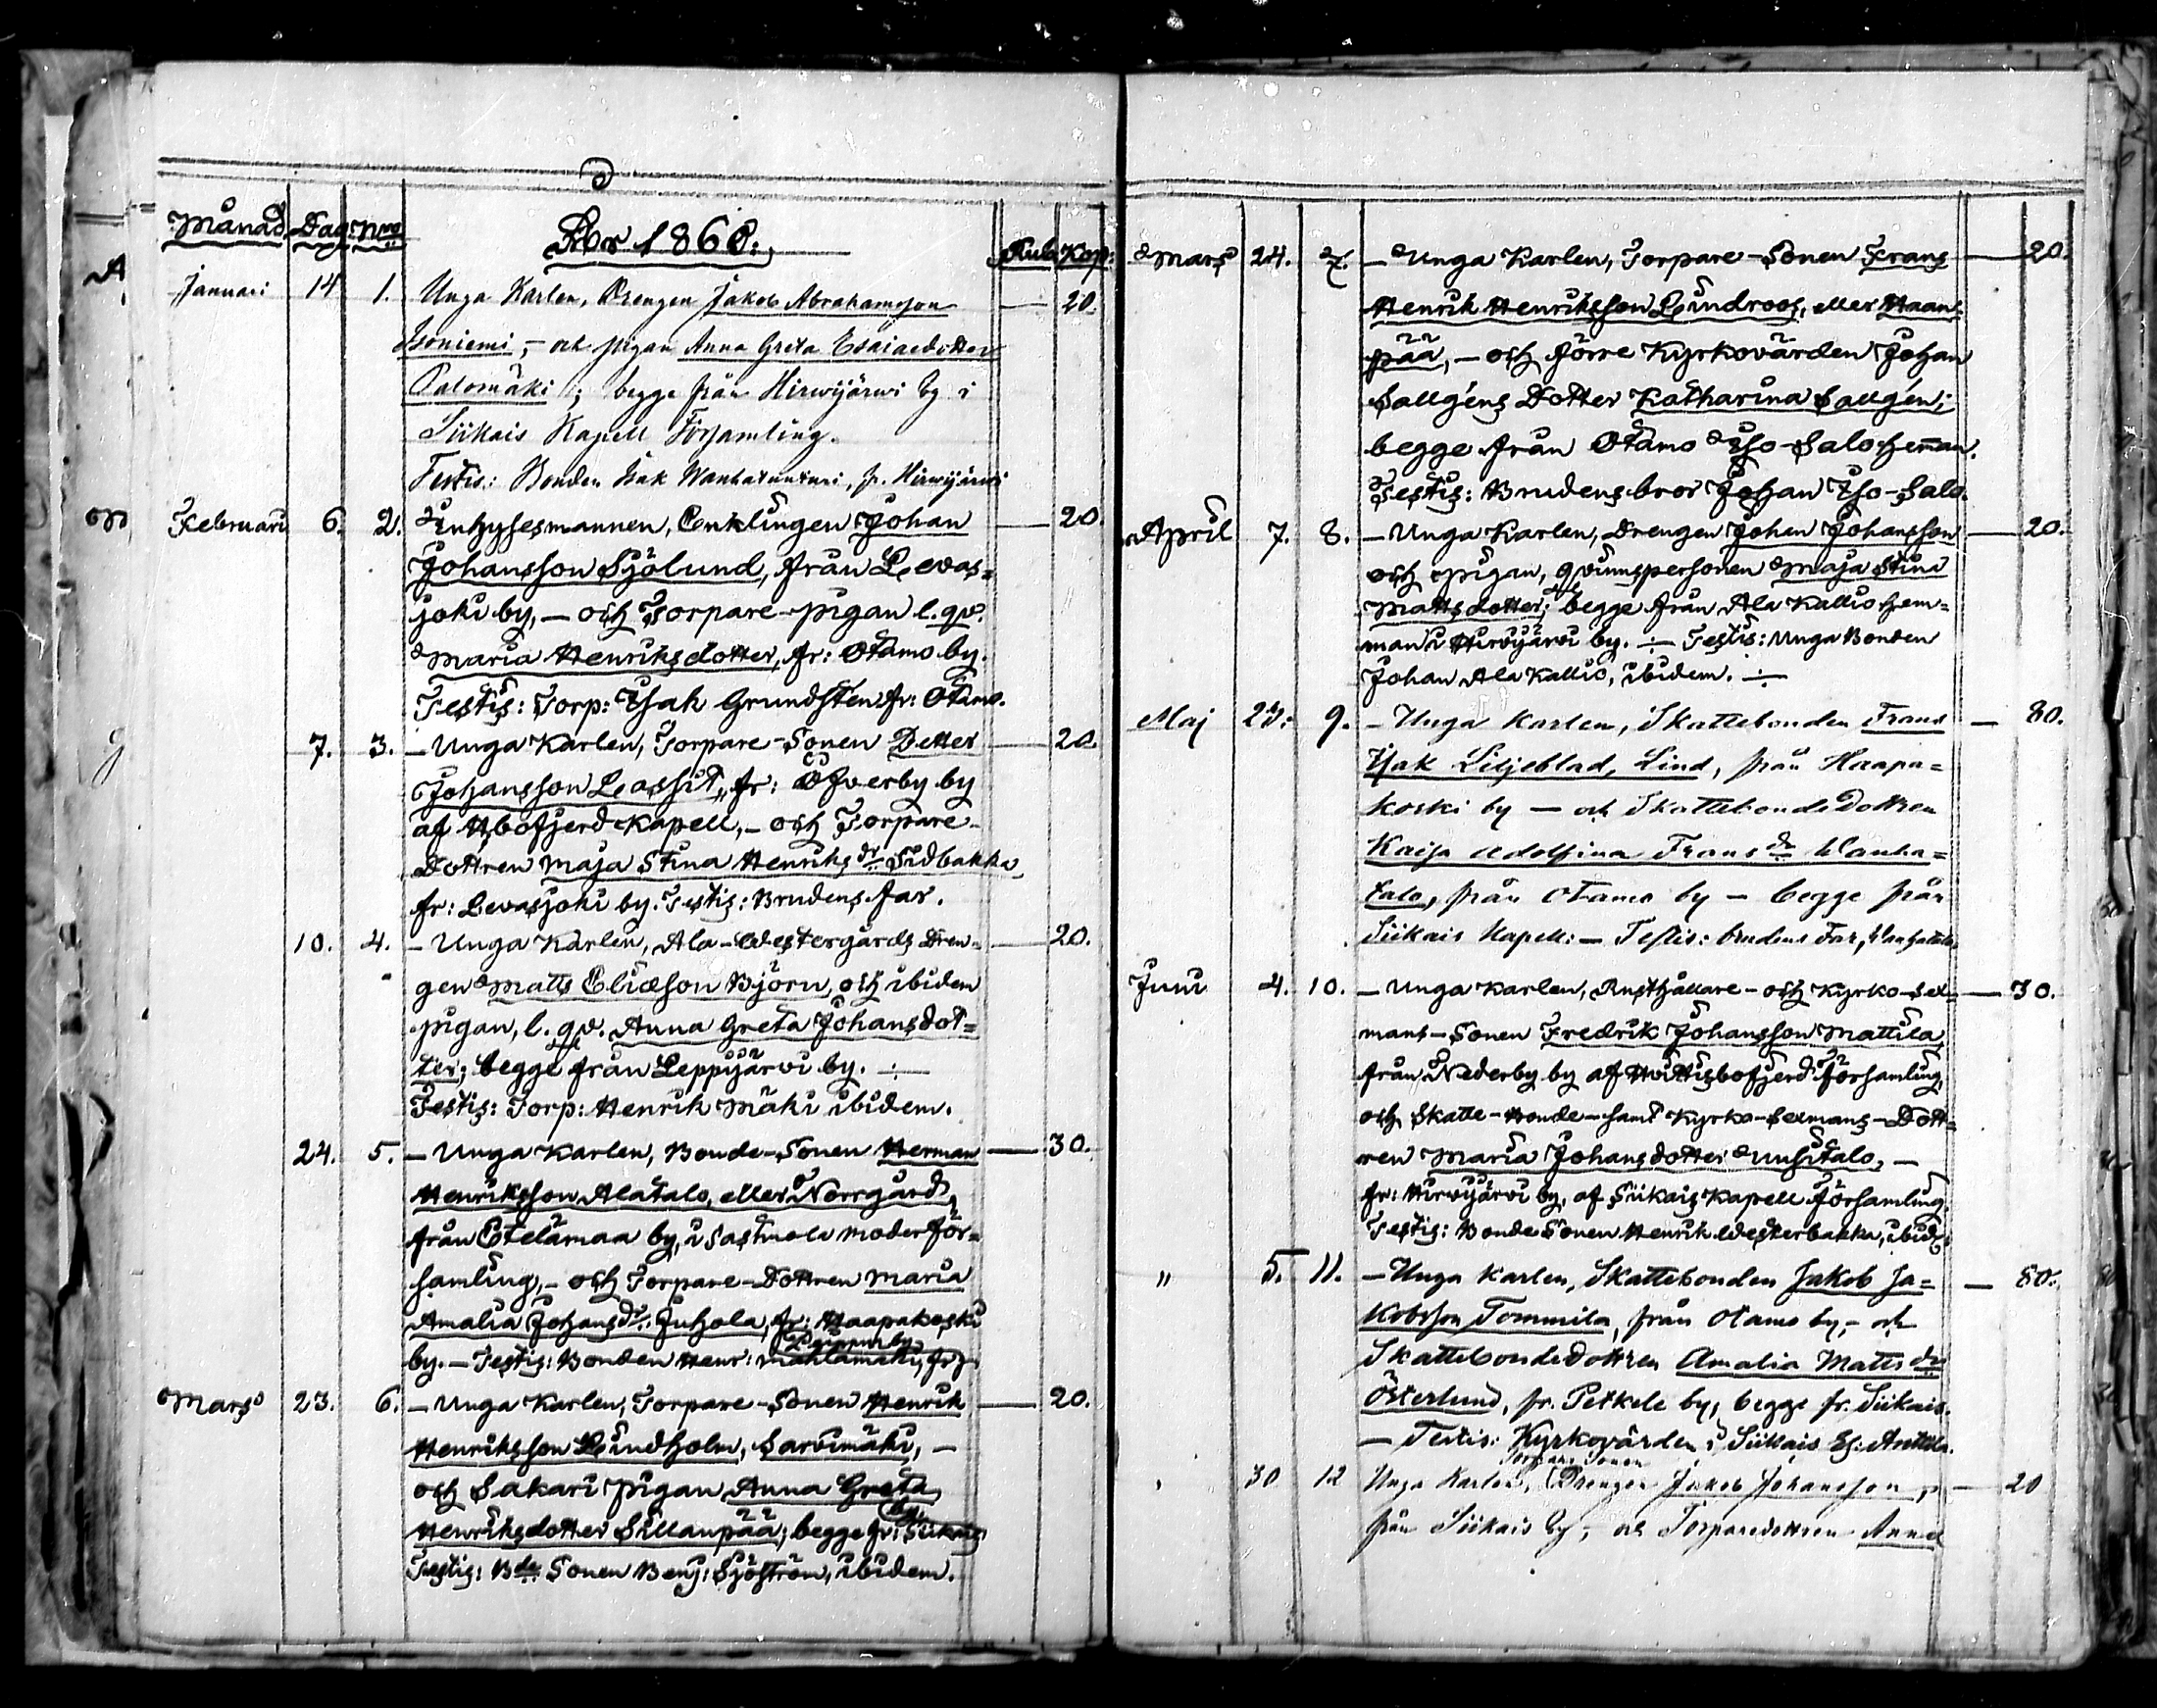 Månad Dag: Nro År 1860. Rub. Kop:
Januari 14 1. Unga Karlen, Drengen Jakob Abrahamsson — 20.
Isoniemi, – och pigan Anna Greta Esaiaedotter
Salomäki; begge från Hirwijärwi by i
Siikais Kapell Församling.
Testis: Bonden Isak Wanhatunturi, fr. Hirwijärwi
Februari 6. 2. Inhysesmannen, Enklingen Johan — 20.
Johansson Sjölund, från Levas=
joki by, – och Torpare-pigan l. qv.
Maria Henriksdotter, fr: Otamo by.
Testis: Torp: Isak Grundsten fr: Otamo.
7. 3. – Unga Karlen, Torpare-Sonen Petter — 20.
Johansson Lassit, fr: Öfverby by
af Åbofjerd Kapell, – och Torpare-
Dottren Maja Stina Henriksdr Sidbakka,
fr: Levasjoki by. Testis: Brudens far.
10. 4. – Unga Karlen, Ala-Westergårds Dren= — 20.
gen Matts Eliæson Björn, och ibidem
pigan, l. qv. Anna Greta Johansdot=
ter; begge från Leppijärvi by. ÷
Testis: Torp: Henrik Mäki ibidem.
24. 5. – Unga Karlen, Bonde-Sonen Herman — 30.
Henriksson Alatalo, eller Norrgård,
från Etelämaa by, i Sastmola moderför=
samling, – och Torpare-Dottren Maria
Amalia Johansdr: Juhola, fr: Haapakoski
by. – Testis: Bonden Henr: Mahlamäki, fr:
Mars 23. 6. – Unga Karlen, Torpare-Sonen Henrik — 20.
Henriksson Lindholm, Sarvimäki, –
och Sakari pigan Anna Greta
Henriksdotter Sillanpää; begge fr: Siikais by.
Testis: Bde Sonen Benj: Sjöström, ibidem.
Mars 24. 7. – Unga Karlen, Torpare-Sonen Frans — 20.
Henrik Henriksson Lindroos, eller Haan=
pää, – och förre Kyrkovärden Johan
Sallgéns Dotter Katharina Sallgén;
begge från Otamo Iso-Salo heman.
Testis: Brudens bror Johan Iso-Salo.
April 7. 8. – Unga Karlen, Drengen Johan Johansson — 20.
och pigan, qvinnspersonen Maja Stina
Mattsdotter; begge från Ala Kallio hem=
man i Hirvijärvi by. ÷ Testis: Unga Bonden
Johan Ala Kallio, ibidem. ÷
Maj 25. 9. – Unga Karlen, Skattebonden Frans — 80.
Isak Liljeblad, Lind, från Haapa=
koski by – och Skattebonde Dottren
Kaisa Adolfina Fransdr Wanha=
talo, från Otamo by – begge från
Siikais Kapell: – Testis: brudens Far, Wanhatalo
Juni 4. 10. – Unga Karlen, Rusthållare- och Kyrko-sex= — 30.
mans-Sonen Fredrik Johansson Mattila,
från Nederby by af Hvittisbofjerd församling,
och Skatte-Bonde- samt Kyrko-Sexmans-Dott=
ren Maria Johansdotter Uusitalo, –
fr: Hirvijärvi by, af Siikais Kapell Församling.
Testis: Bonde Sonen Henrik Westerbakka, ibid:
" 5. 11. – Unga Karlen, Skattebonden Jakob Ja= — 80.
kobsson Tommila, från Otamo by, – och
Skattebonde Dottren Amalia Mattsdr
Österlund, fr. Petkele by, begge fr. Siikais.
– Testis: Kyrkovärden i Siikais Es: Anttila.
30 12 Unga Karlen, Torpare Sonen Drengen Jakob Johansson, — 20
från Siikais by, – och Torparedottren Anna